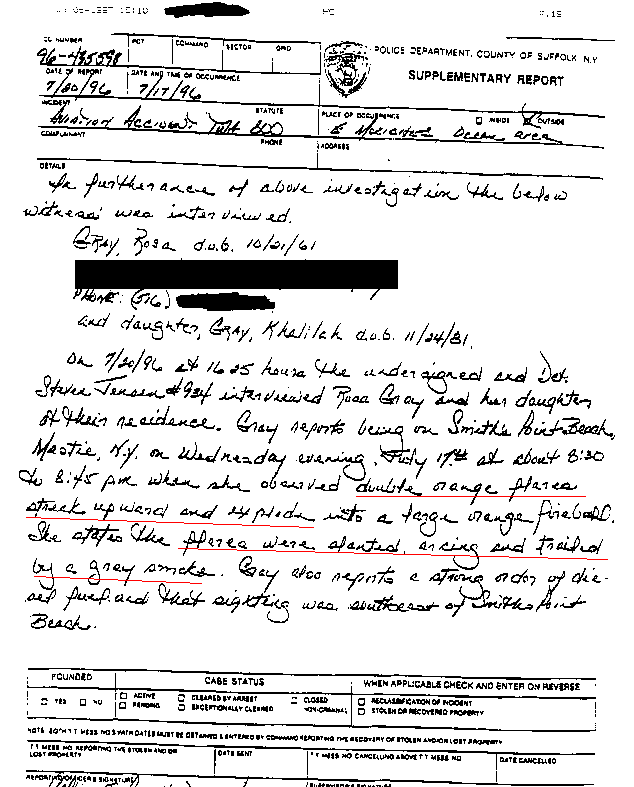 15:10
CC NUMBER PCT COMMAND SECTOR GRID
96-435598
POLICE DEPARTMENT, COUNTY OF SUFFOLK N.Y.
SUPPLEMENTARY REPORT
DATE OF REPORT DATE AND TIME OF OCCURRENCE
7/20/96 7/17/96
INCIDENT STATUTE PLACE OF OCCURRENCE INSIDE OUTSIDE
Aviation Accident TWA 800 E Moriches Ocean area
COMPLAINANT PHONE ADDRESS
DETAILS
In furtherance of above investigation the below
witness was interviewed.
Gray, Rosa d.o.b. 10/21/61
PHONE: (516)
and daughter, Gray, Khalilah d.o.b. 11/24/81.
On 7/20/96 at 1625 hours the undersigned and Det.
Steven Jensen #924 interviewed Rosa Gray and her daughter
at their residence. Gray reports being on Smith's Point Beach,
Mastic, N.Y. on Wednesday evening, July 17th at about 8:30
to 8:45 pm when she observed double orange flares
streak upward and explode into a large orange fireball.
She states the flares were slanted, arcing and trailed
by a gray smoke. Gray also reports a strong order of die-
sel fuel and that sighting was southeast of Smiths Point
Beach.
FOUNDED CASE STATUS WHEN APPLICABLE CHECK AND ENTER ON REVERSE
YES NO ACTIVE CLEARED BY ARREST CLOSED RECLASSIFICATION OF INCIDENT
PENDING EXCEPTIONALLY CLEARED NON-CRIMINAL STOLEN OR RECOVERED PROPERTY
NOTE: BOTH T T MESS NO'S WITH DATES MUST BE OBTAINED & ENTERED BY COMMAND REPORTING THE RECOVERY OF STOLEN AND/OR LOST PROPERTY
T T MESS NO REPORTING THE STOLEN AND/OR DATE SENT T T MESS NO CANCELLING ABOVE T T MESS NO DATE CANCELLED
LOST PROPERTY
REPORTING OFFICER'S SIGNATURE SUPERVISOR'S SIGNATURE